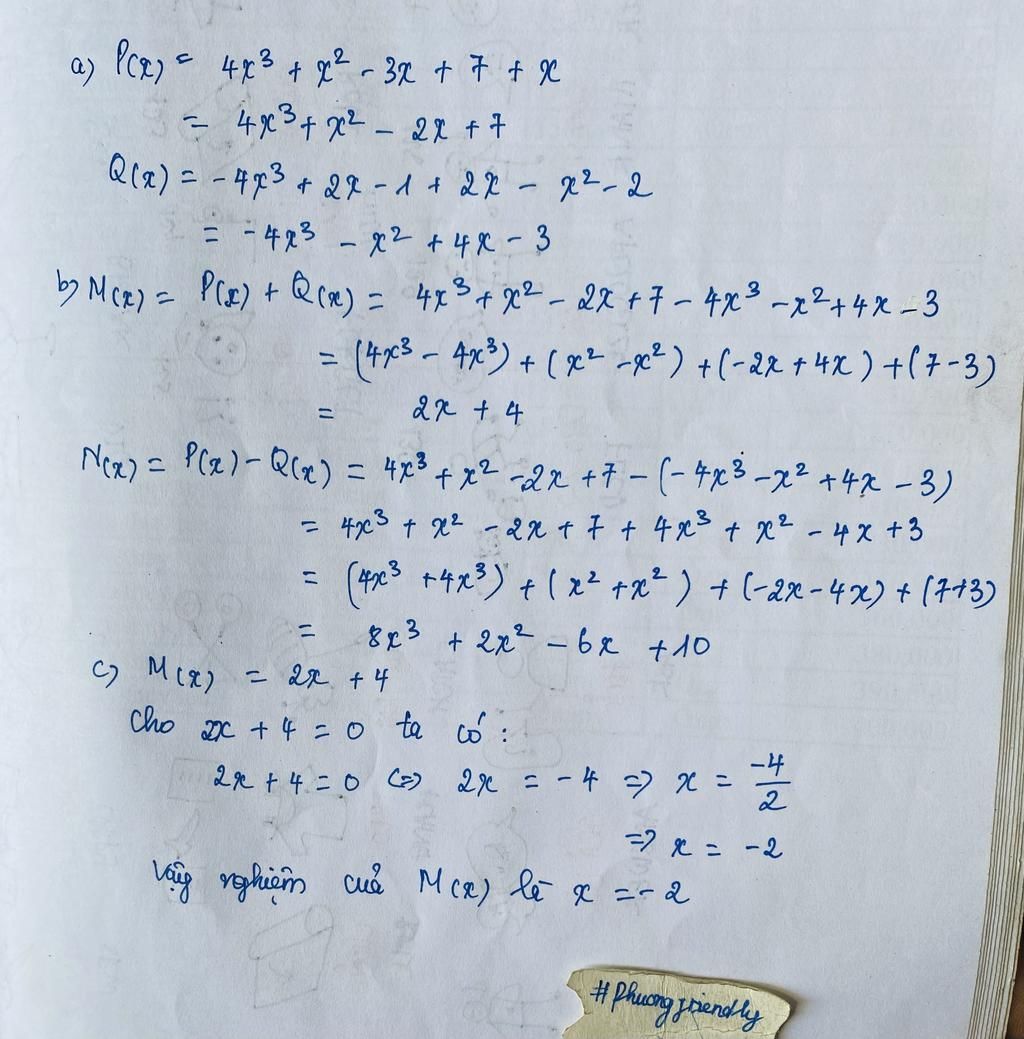 a) P(x) = 4x³ + x² - 3x + 7 + x
= 4x³ + x² - 2x + 7
Q(x) = -4x³ + 2x - 1 + 2x - x² - 2
= -4x³ - x² + 4x - 3
b) M(x) = P(x) + Q(x) = 4x³ + x² - 2x + 7 - 4x³ - x² + 4x - 3
= (4x³ - 4x³) + (x² - x²) + (-2x + 4x) + (7 - 3)
= 2x + 4
N(x) = P(x) - Q(x) = 4x³ + x² - 2x + 7 - (-4x³ - x² + 4x - 3)
= 4x³ + x² - 2x + 7 + 4x³ + x² - 4x + 3
= (4x³ + 4x³) + (x² + x²) + (-2x - 4x) + (7+3)
= 8x³ + 2x² - 6x + 10
c) M(x) = 2x + 4
Cho 2x + 4 = 0 ta có :
2x + 4 = 0 <=> 2x = -4 => x = -4/2
=> x = -2
Vậy nghiệm của M(x) là x = -2
#Phuongfriendly